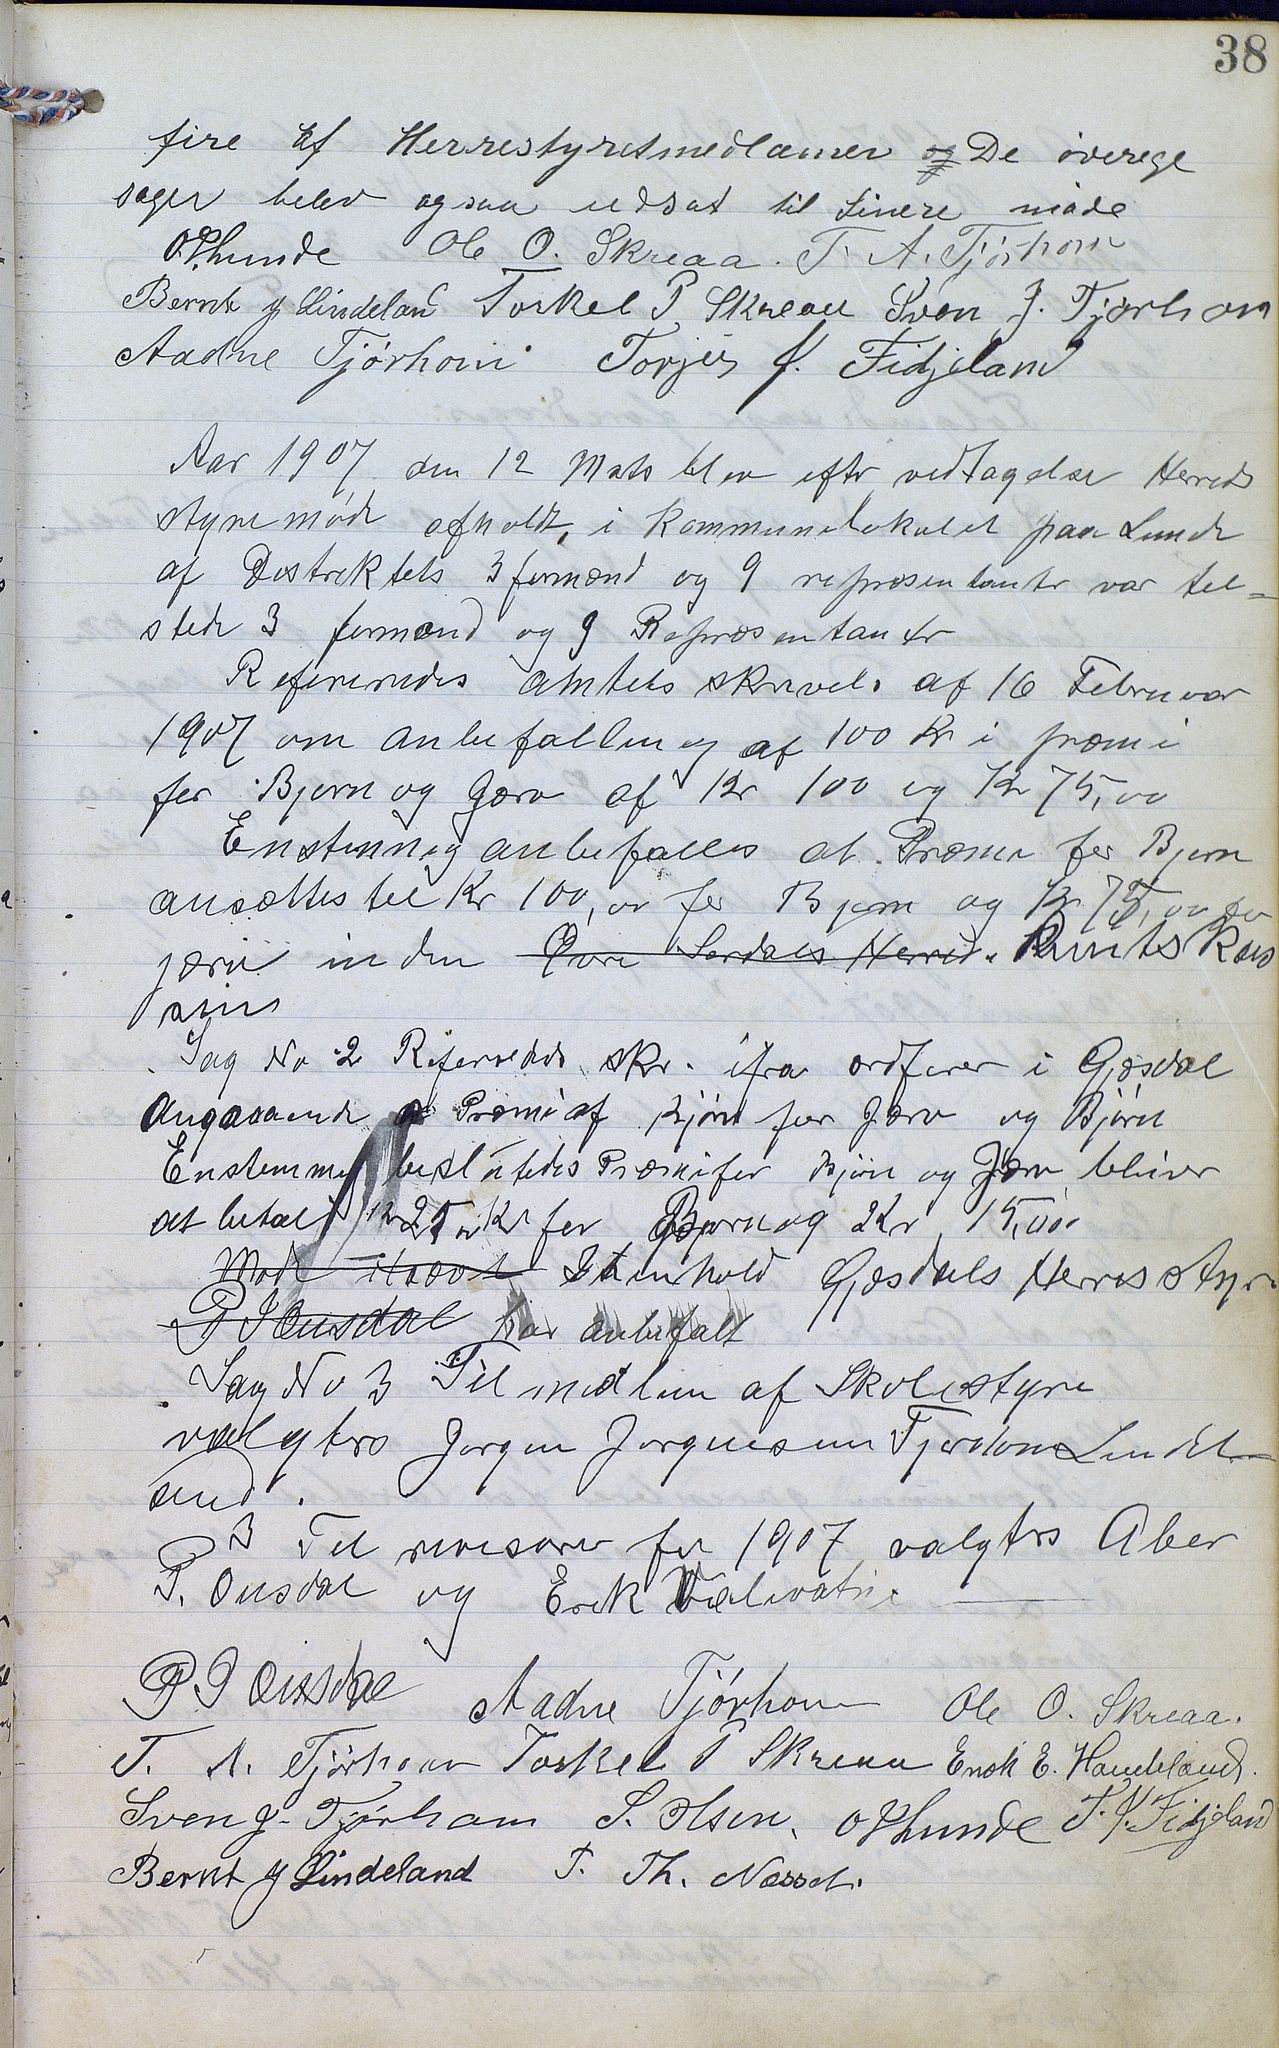 38
fire af Herrestyretmedlamer og De øverege
sager belev ogsaa udsat til Sinere møde
O P Lunde Ole O. Skreaa. T. A. Tjørhom
Bernt J Lindeland Torkel P Skreaa Sven J. Tjørhom
Aadne Tjørhom Torjus K. Fidjeland
Aar 1907 den 12 Mats blev eftr vedtagelse Herreds
styremøde afholdt, i Kommunelokalet paa Lunde
af Destrektets 3 formænd og 9 repræsentantr var tel=
stede 3 formænd og 9 Repræsentantr
Refereredes Amtets skrivels af 16 Februar
1907 om anbefalling af 100 Kr i præmi
for Bjørn og Jærv af Kr 100 og Kr 75,00
Enstemmig anbefalles at Præmi for Bjørn
ansættes tel Kr 100,00 for Bjørn og Kr 75,00 for
jærv inden Øvre Serdals Herred. Amts Kas
sins
Sag No 2 Refereredes skr. ifra ordfører i Gjesdal
Angaaende Præmi af for Jærv og Bjørn
Enstemmig beslutedes Præmi for Bjørn og Jærv bliver
at betale Kr 25 Kr for Bjørn og Kr 15,00
Mod Gjesdals Herreds styre
P J Ousdal har anbefalt
Sag No 3 Til medlem af Skolestyre
valgtes Jørgen Jørgensen Tjørhom Lindel
and.
3 Tel revesorer for 1907 valgtes Aber
P. Ousdal og Erek
P J Ousdal Aadne Tjørhom Ole O. Skreaa.
T. A. Tjørhom Torkel P Skreaa Enok E. Haudeland.
Sven J. Tjørhom S. Olsen. O P Lunde T. K. Fidjeland
Bernt J Lindeland T. Th. Nesset.